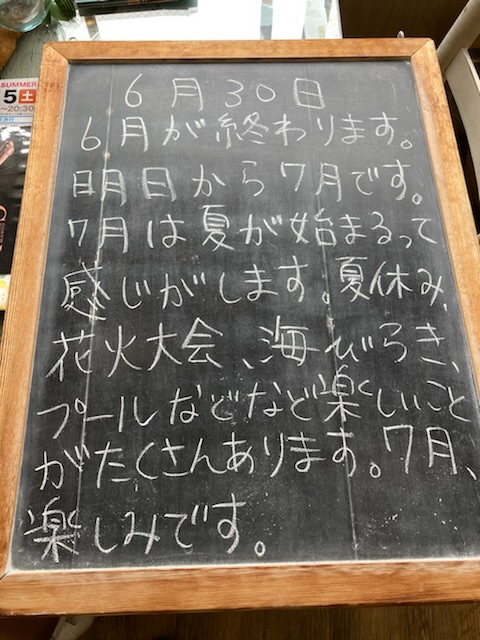 6月30日
6月が終わります。
明日から7月です。
7月は夏が始まるって
感じがします。夏休み、
花火大会、海びらき、
プールなどなど楽しいこと
がたくさんあります。7月、
楽しみです。
SUMMER
5土
~20:30